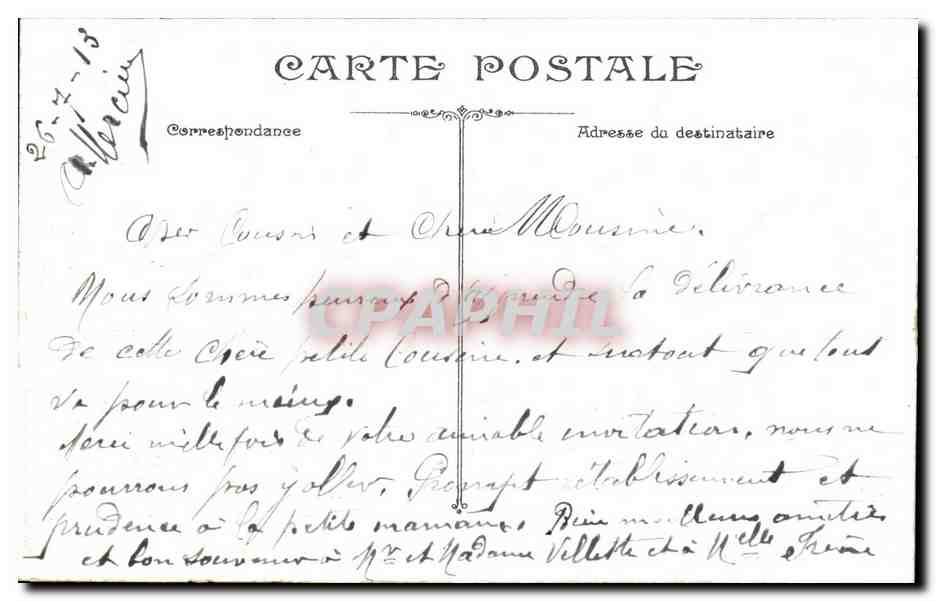 26-7-13
Mercier
CARTE POSTALE
Correspondance
Adresse du destinataire
Cher Cousin et Chère Cousine.
Nous sommes heureux d'apprendre la délivrance
de cette chère petite Cousine, et surtout que tout
va pour le mieux.
Merci mille fois de votre aimable invitation, nous ne
pourrons pas y aller. Prompt rétablissement et
prudence à la petite maman. Bien meilleures amitiés
et bon souvenir à Mr et Madame Villette et à Melle
CPAPHIL